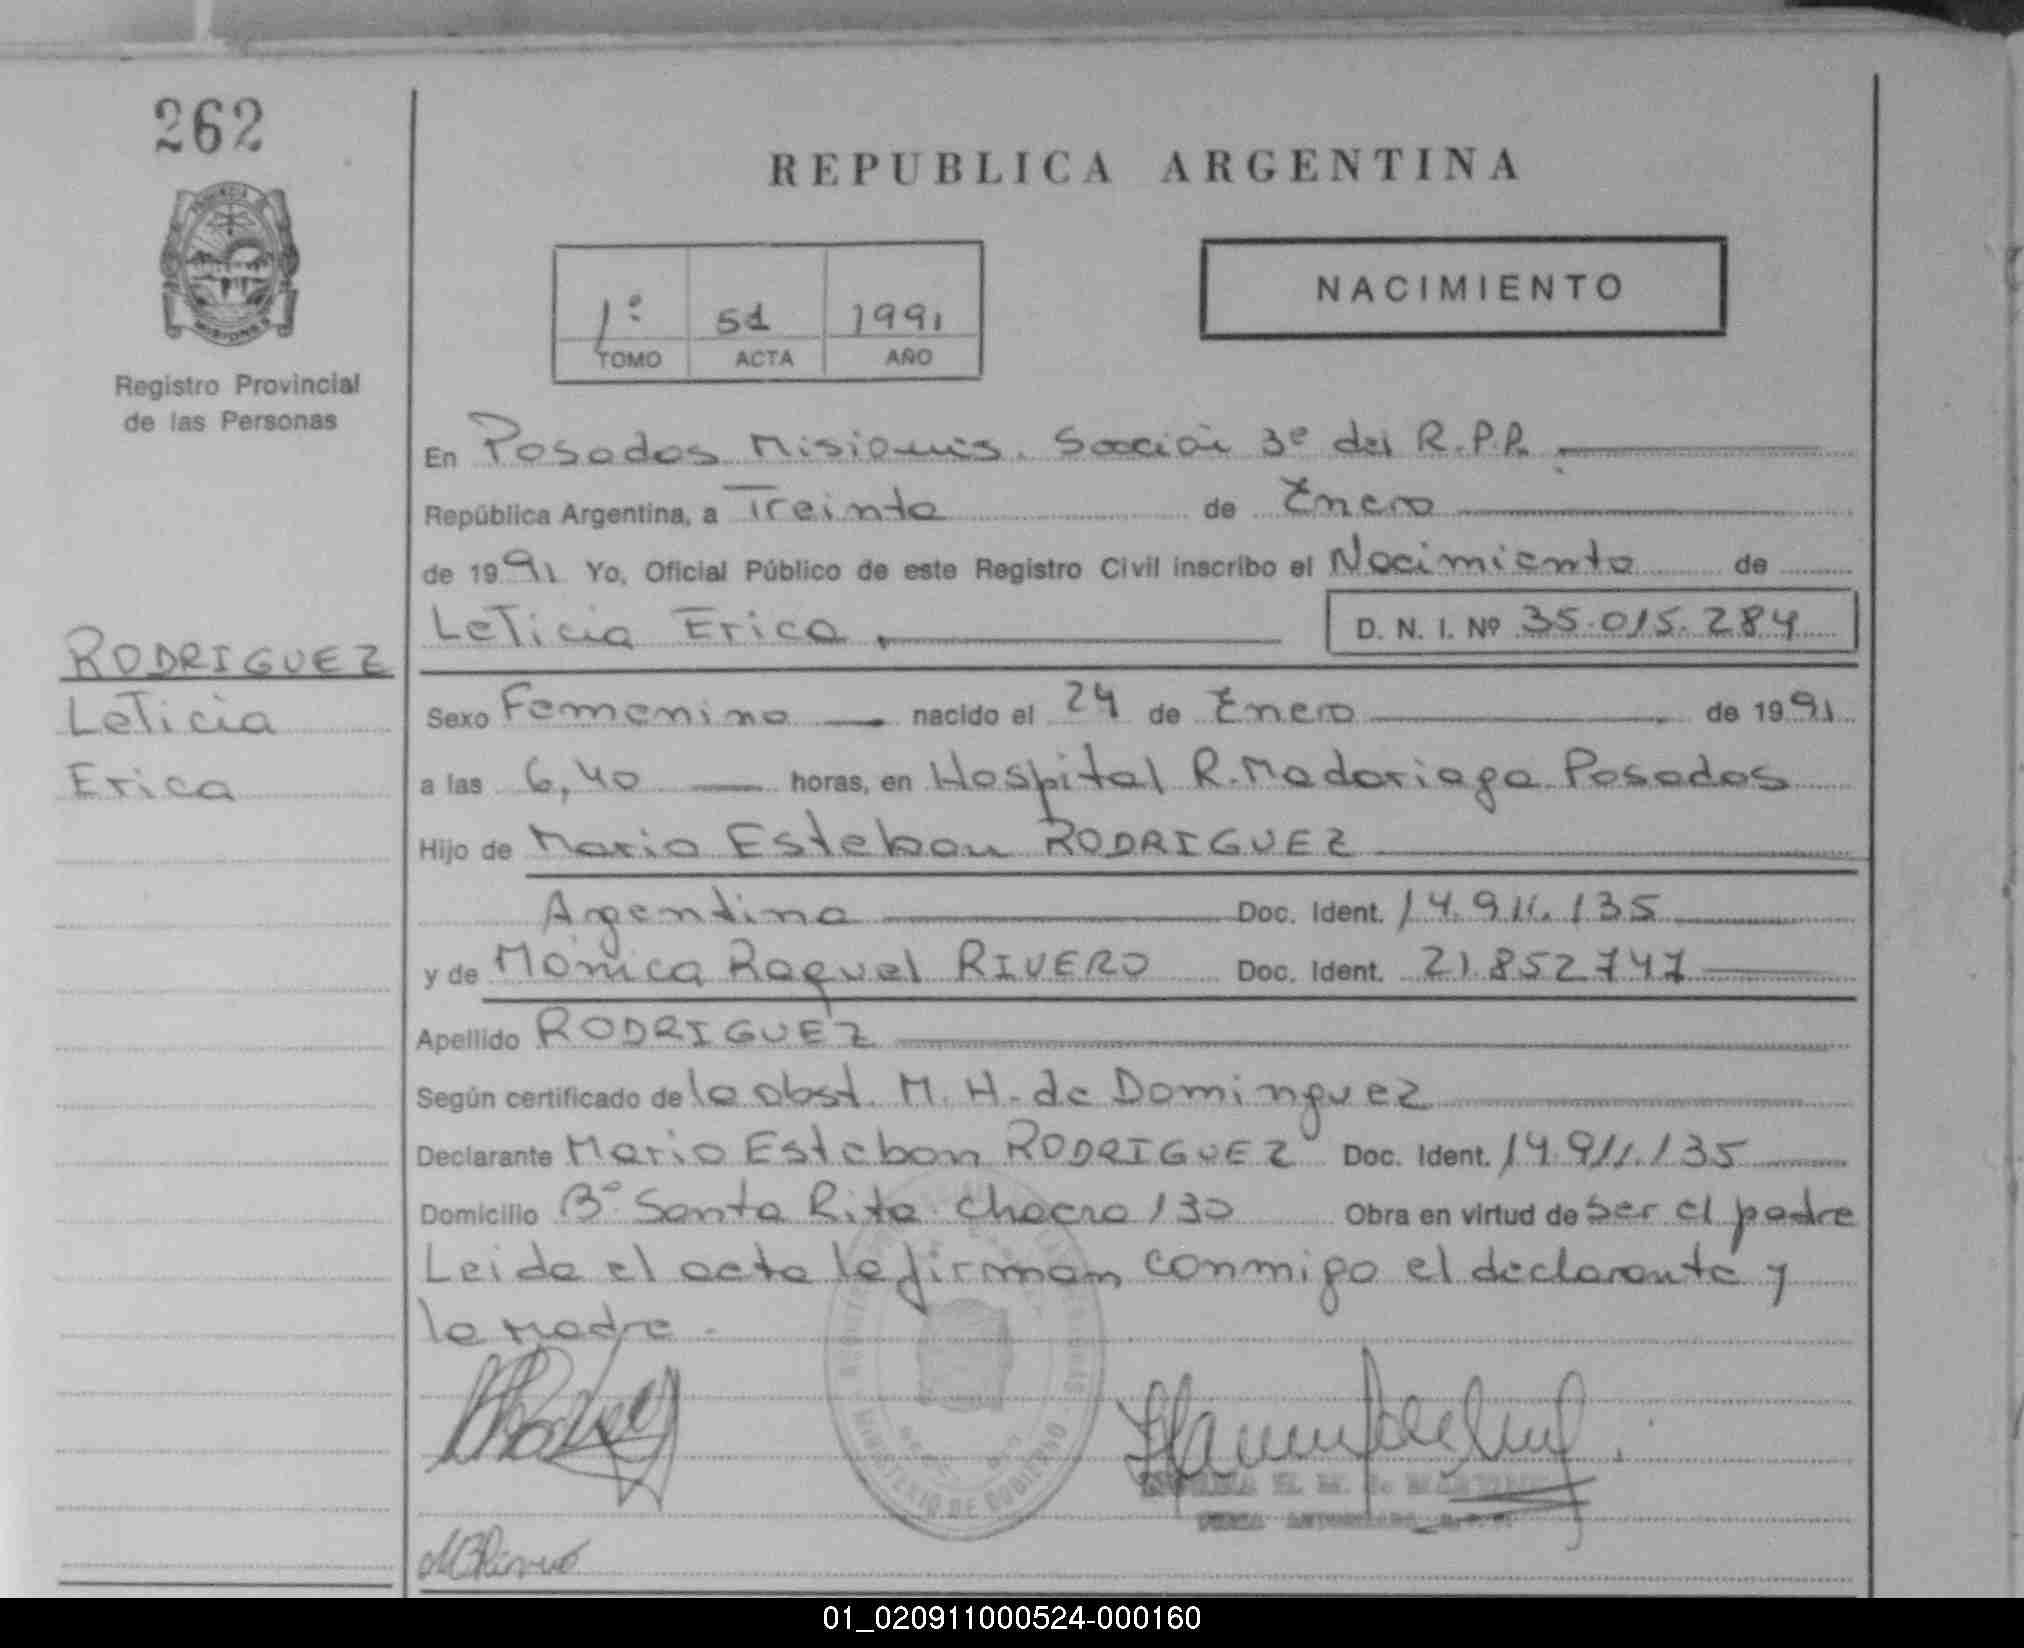 262
REPUBLICA ARGENTINA
NACIMIENTO
1º 51 1991
TOMO ACTA AÑO
Registro Provincial
de las Personas
En Posadas Misiones. Sección 3ª del R.P.P.
República Argentina, a Treinta de Enero
de 1991 Yo, Oficial Público de este Registro Civil inscribo el Nacimiento de
Leticia Erica D. N. I. Nº 35.015.284
RODRIGUEZ
Leticia
Erica
Sexo Femenino nacido el 24 de Enero de 1991
a las 6,40 horas, en Hospital R. Madariaga Posadas
Hijo de Mario Esteban RODRIGUEZ
Argentina Doc. Ident. 14.911.135
y de Mónica Raquel RIVERO Doc. Ident. 21.852747
Apellido RODRIGUEZ
Según certificado de la obst. M. H. de Dominguez
Declarante Mario Esteban RODRIGUEZ Doc. Ident. 14.911.135
Domicilio Bº Santa Rita Chacra 130 Obra en virtud de ser el padre
Leida el acta la firman conmigo el declarante y
la Madre.
MINISTERIO DE GOBIERNO
01_020911000524-000160